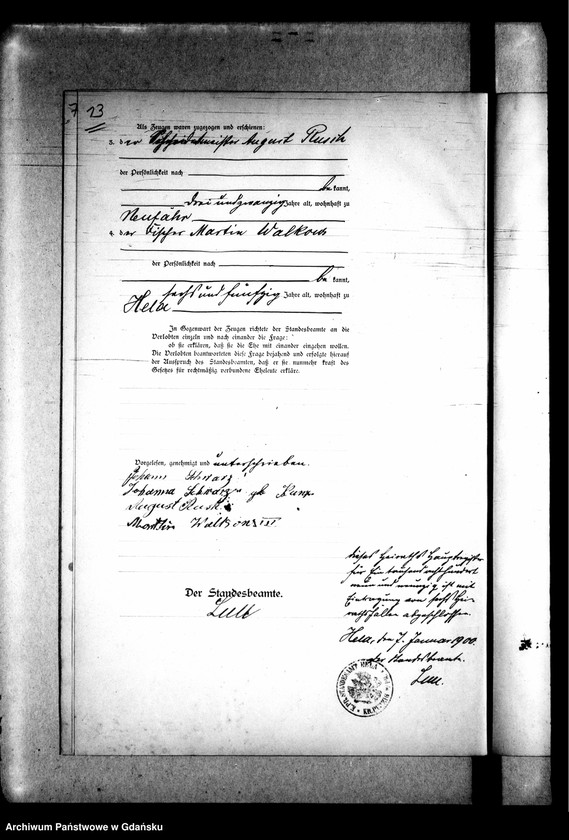 23
Als Zeugen waren zugezogen und erschienen:
3. der August Rusch
der Persönlichkeit nach
bekannt,
drei und zwanzig Jahre alt, wohnhaft zu
Neufähr
4. der Fischer Martin Walkow
der Persönlichkeit nach
bekannt,
sechs und fünfzig Jahre alt, wohnhaft zu
Hela
In Gegenwart der Zeugen richtete der Standesbeamte an die
Verlobten einzeln und nach einander die Frage:
ob sie erklären, daß sie die Ehe mit einander eingehen wollen.
Die Verlobten beantworteten diese Frage bejahend und erfolgte hierauf
der Ausspruch des Standesbeamten, daß er sie nunmehr kraft des
Gesetzes für rechtmäßig verbundene Eheleute erkläre.
Vorgelesen, genehmigt und unterschrieben.
Johann Schwarz
Johanna Schwarz gb
August Rusch
Martin Walkow III
Der Standesbeamte.
Dieses Heiraths Hauptregister
für Ein tausend acht hundert
neun und neunzig ist mit
Eintragung von sechs Hei-
rathsfällen abgeschlossen.
Hela, den 7. Januar 1900.
der Standesbeamte.
Archiwum Państwowe w Gdańsku